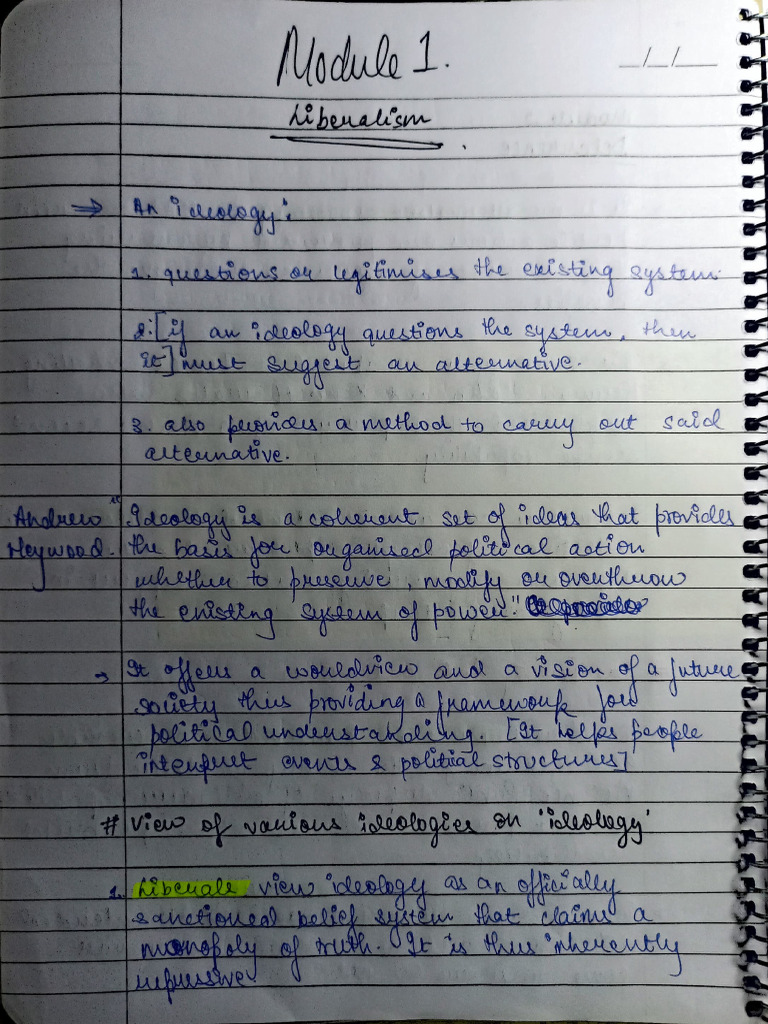 Module 1.
__/__/__
Liberalism
⇒ An ideology:
1. questions or legitimises the existing system
2. [if an ideology questions the system, then
it] must suggest an alternative.
3. also provides a method to carry out said
alternative.
Andrew "Ideology is a coherent set of ideas that provides
Heywood. the basis for organised political action
whether to preserve, modify or overthrow
the existing system of power."
→ It offers a worldview and a vision of a future
society thus providing a framework for
political understanding. [It helps people
interpret events & political structures]
# View of various ideologies on 'ideology'
1. Liberals view ideology as an officially
sanctioned belief system that claims a
monopoly of truth. It is thus inherently
repressive.